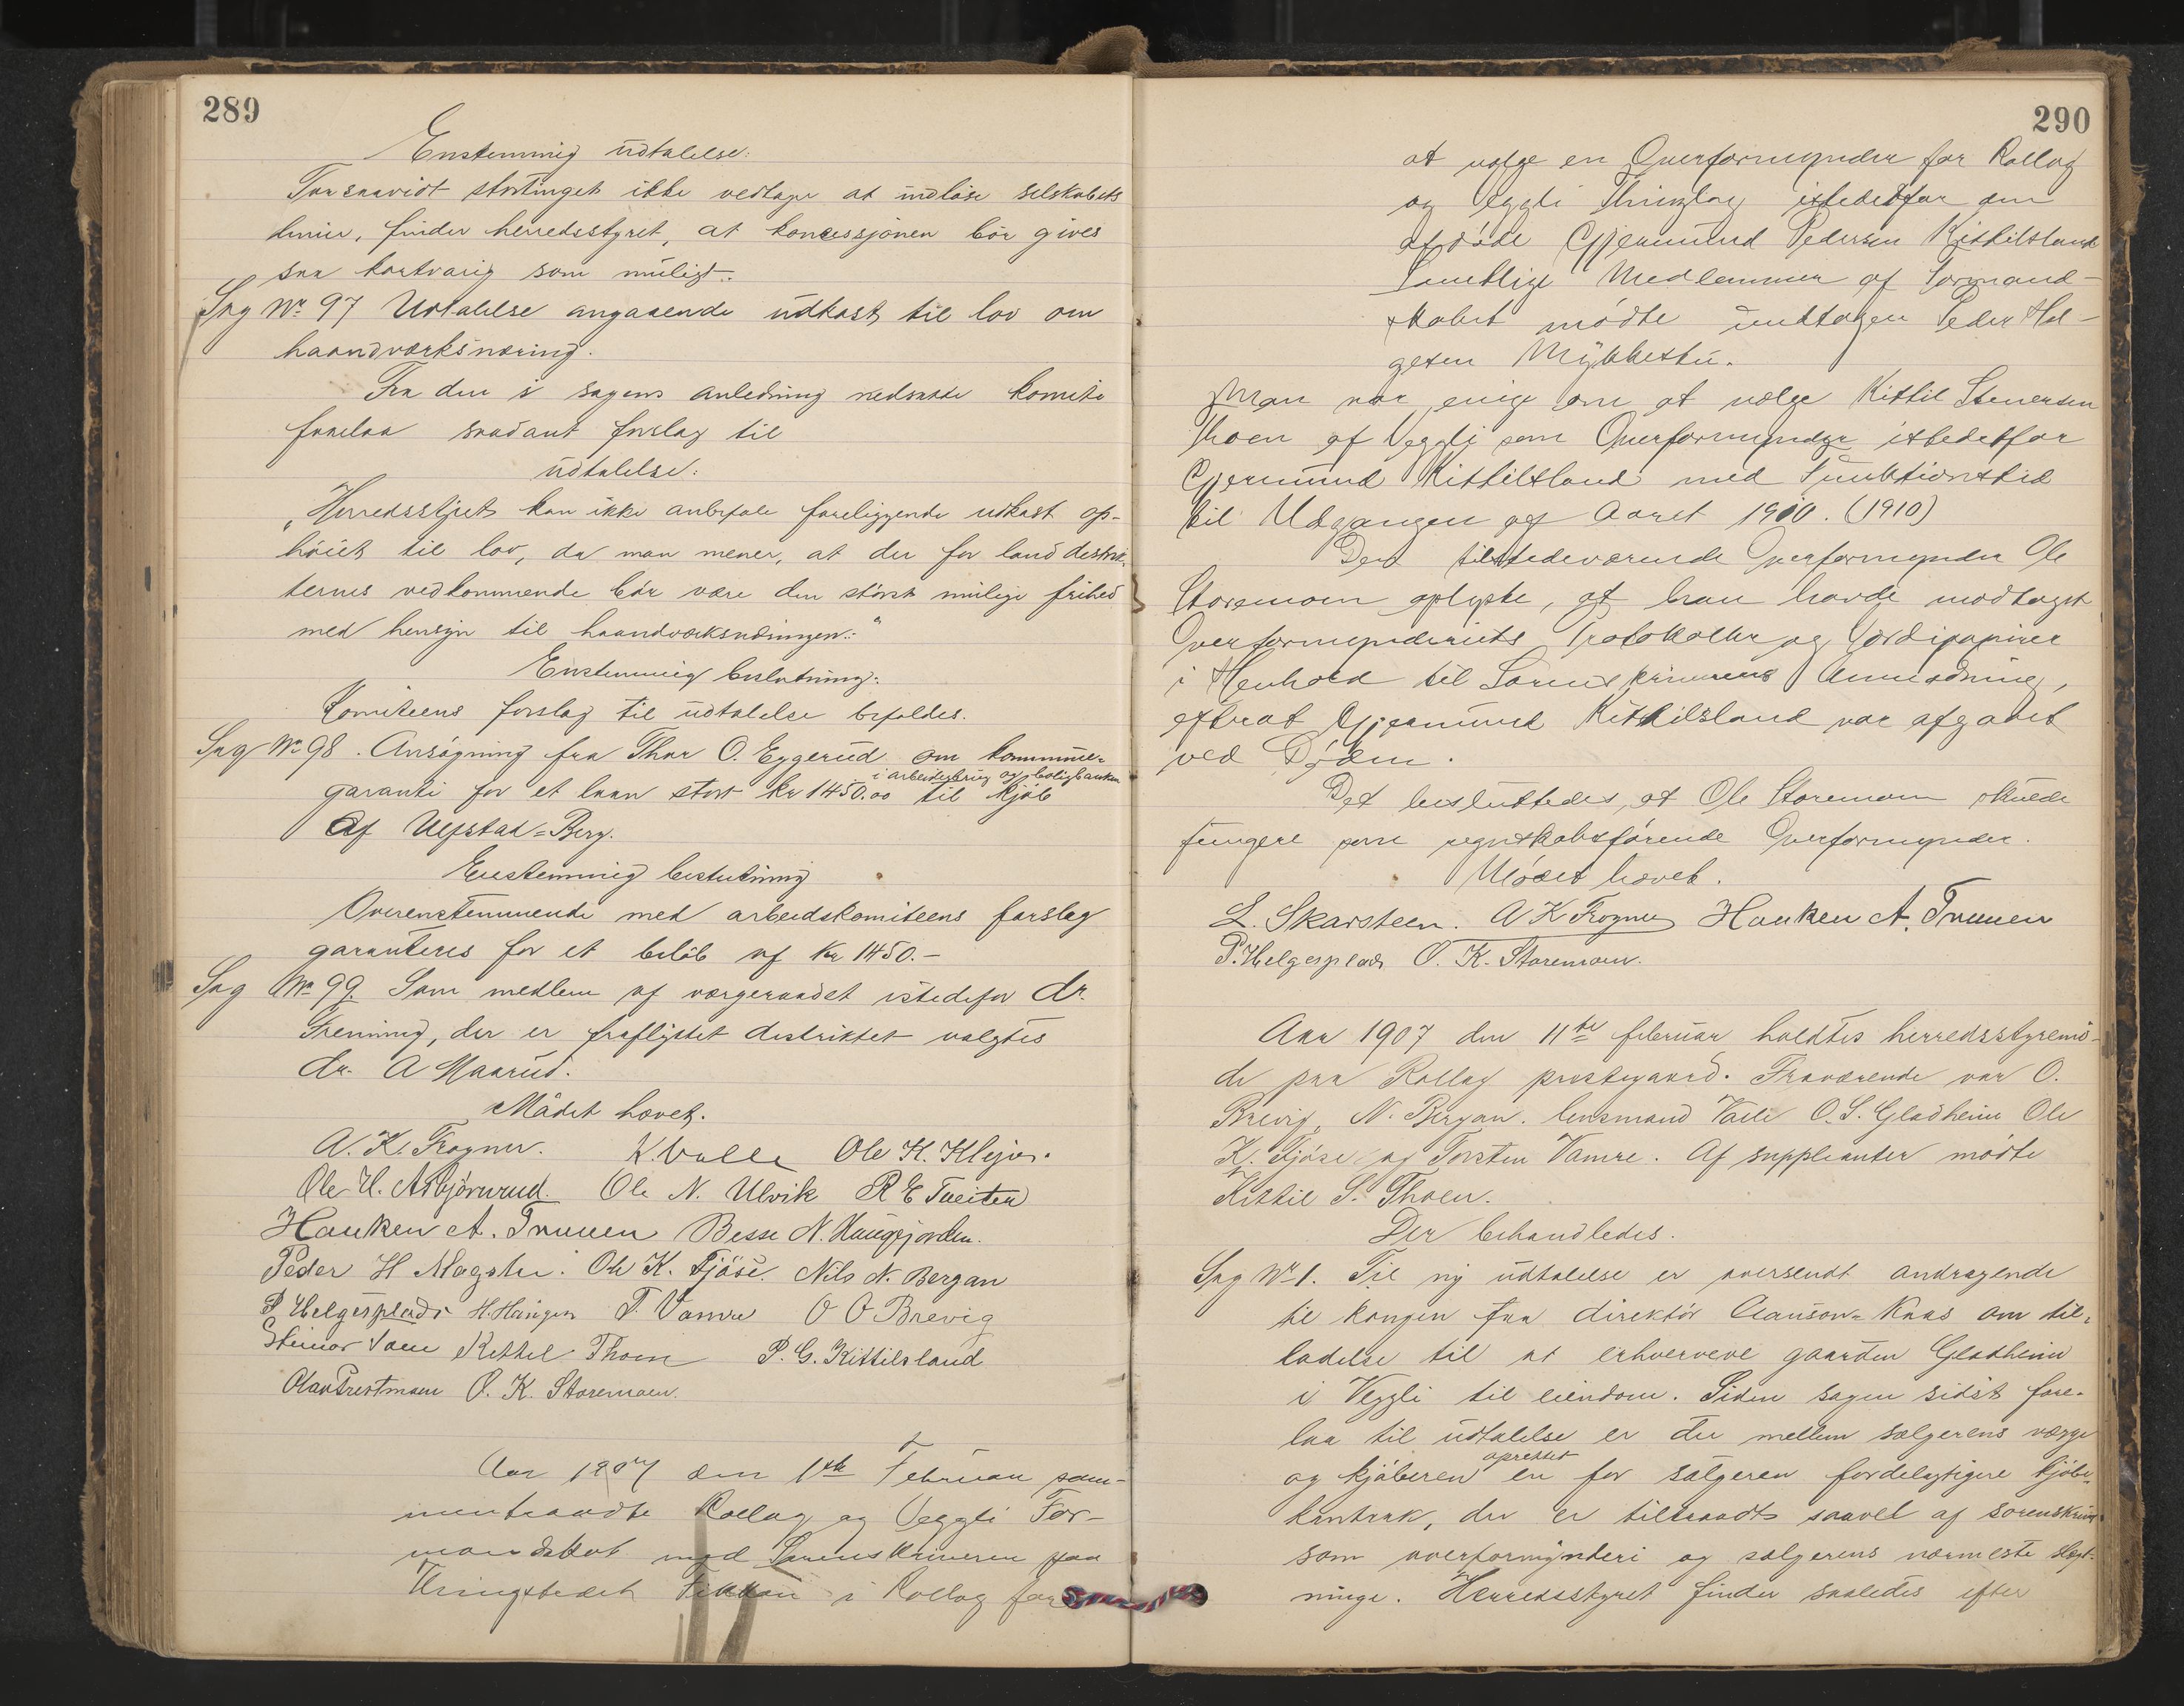 289
Enstemmig udtalelse:
Forsaavidt stortinget ikke vedtager at indløse selskabets
linier, finder herredsstyret, at koncessjonen bør gives
saa kortvarig som muligt.
Sag No 97 Udtalelse angaaende udkast til lov om
haandværksnæring.
Fra den i sagens anledning nedsatte komite
forelaa saadant forslag til
udtalelse:
"Herredsstyret kan ikke anbefale foreliggende udkast op-
høiet til lov, da man mener, at der for landdistrik-
ternes vedkommende bør være den størst mulige frihed
med hensyn til haandværksnæringen."
Enstemmig beslutning:
Komiteens forslag til udtalelse befaldes.
Sag No 98. Ansøgning fra Thor O. Eggerud om kommune-
i arbeiderbrug og boligbanken
garanti for et laan stort kr 1450.00 til kjøb
Af Ulfstad-Berg.
Enstemmig beslutning
Overenstemmende med arbeidskomiteens forslag
garanteres for et beløb af kr 1450.-
Sag No 99. Som medlem af værgeraadet istedefor dr.
Frenning, der er fraflyttet distriktet valgtes
dr. A Maarud.
Mødet hævet.
A. K. Frogner. K. Valle Ole K. Kleiv.
Ole H. Asbjørnrud. Ole N. Ulvik R E Tveiten
Haaken A. Traaen Besse N. Haugejorden.
Peder H Møgstu. Ole K. Fjøse. Nils N. Bergan
P. Helgesplads H. Haugen T. Vamre O O Brevig
Steinar Kittel Thoen P. G. Kittilsland
Olav Prestmoen O. K. Storemoen.
Aar 1907 den 1ste Februar sam-
mentraadte Rollag og Veggli For-
mandskab med Sorenskriveren paa
Thingstedet i Rollag for
290
at vælge en Overformynder for Rollag
og Veggli Thinglag istedetfor den
afdøde Gjermund Pedersen Kittilsland
Samtlige Medlemmer af Formand-
skabet mødte undtagen Peder Hel-
gesen Mykkestu.
Man var enig om at vælge Kittil Stenersen
Thoen af Veggli som Overformynder istedetfor
Gjermund Kittilsland med Funktionstid
til Udgangen af Aaret 1910. (1910)
Den tilstedeværende Overformynder Ole
Storemoen oplyste, at han havde modtaget
Overformynderiets Protokoller og Værdipapirer
i Henhold til Sorenskriverens Anmodning,
efterat Gjermund Kittilsland var afgaaet
ved Døden.
Det besluttedes, at Ole Storemoen skulde
fungere som regnskabsførende Overformynder.
Mødet hævet.
L. Skarsteen. A K Frogner Haaken A. Traaen
P. Helgesplads O. K. Storemoen.
Aar 1907 den 11te februar holdtes herredsstyremø-
de paa Rollag prestegaard. Fraværende var O.
Brevig, N. Bergan. lensmand Valle O. S. Gladheim Ole
K. Fjøse og Torsten Vamre. Af suppleanter mødte
Kittil S. Thoen.
Der behandledes.
Sag No 1. Til ny udtalelse er oversendt andragende
til kongen fra direktør Clauson-Kaas om til-
ladelse til at erhverve gaarden Gladheim
i Veggli til eiendom. Siden sagen sidst fore-
laa til udtalelse er der mellem sælgerens værge
oprettet
og kjøberen en for sælgeren fordelagtigere kjøbe-
kontrak, der er tiltraadt saavel af sorenskriver
som overformynderi og sælgerens nærmeste slægt-
ninge. Herredsstyret finder saaledes efter